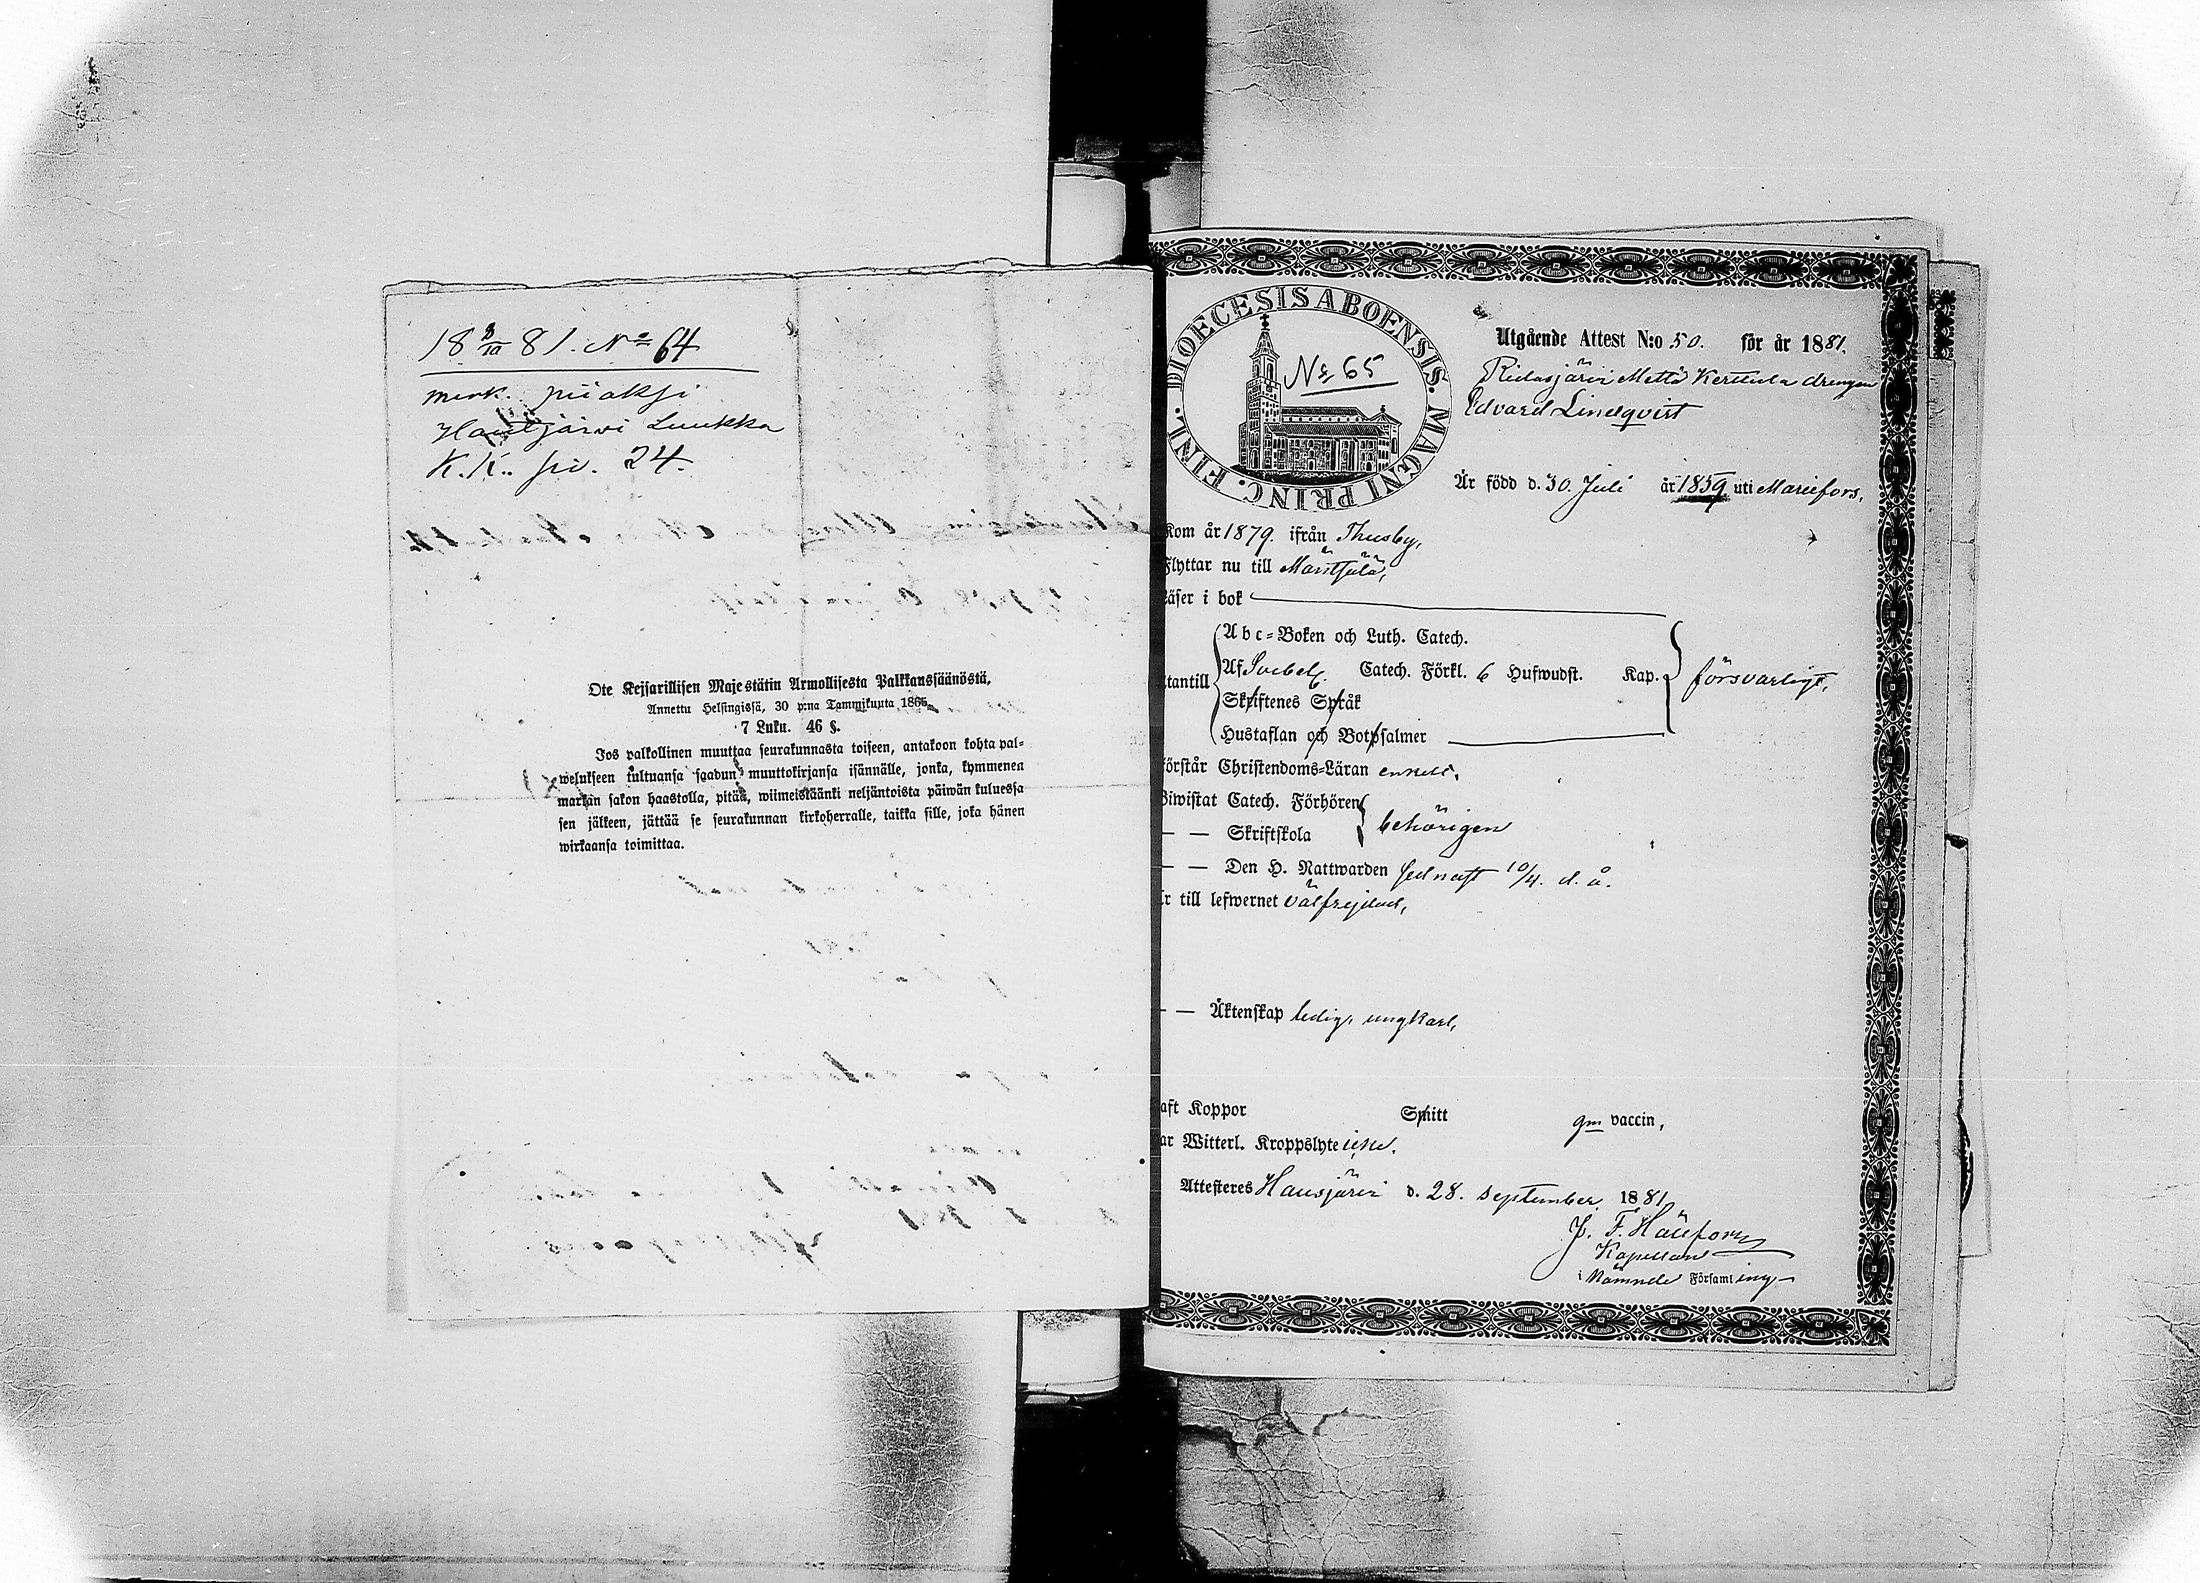 18 8/10 81. No 64
merk. piiaksi
Hausjärvi Luukka
K.K. siv. 24.
Ote Keisarillisen Majestätin Armollisesta Palkkaussäänöstä,
Annettu Helsingissä, 30 p:nä Tammikuuta 1865.
7 Luku. 46 §.
Jos palkollinen muuttaa seurakunnasta toiseen, antakoon kohta pal-
welukseen tultuansa saadun muuttokirjansa isännälle, jonka, kymmenen
markan sakon haastolla, pitää, wiimeistäänki neljäntoista päiwän kuluessa
sen jälkeen, jättää se seurakunnan kirkoherralle, taikka sille, joka hänen
wirkaansa toimittaa.
DIOECESIS ABOENSIS. MAGNI PRINC. FINL.
No 65
Utgående Attest N:o 50. för år 1881.
Ridasjärvi Mattä Kerttula drengen
Edvard Lindqvist
Är född d. 30. Juli år 1859 uti Mariefors,
Kom år 1879. ifrån Thusby,
Flyttar nu till Mäntsälä,
Läser i bok
Abc-Boken och Luth. Catech.
Af Svebel. Catech. Förkl. 6 Hufwudst. Kap.
försvarligt,
utantill
Skriftenes Språk
Hustaflan och Botpsalmer
Förstår Christendoms-Läran enkelt.
Biwistat Catech. Förhören
— — Skriftskola
behörigen
— — Den H. Nattwarden sednast 10/4. d. å.
Är till lefwernet välfrejdad,
— — Äktenskap ledig, ungkarl,
Haft Koppor Smitt gm vaccin,
Har Witterl. Kroppslyte icke.
Attesteres Hausjärvi d. 28. september 1881
J. F. Hällfors
Kapellan
i Nämnde Församling